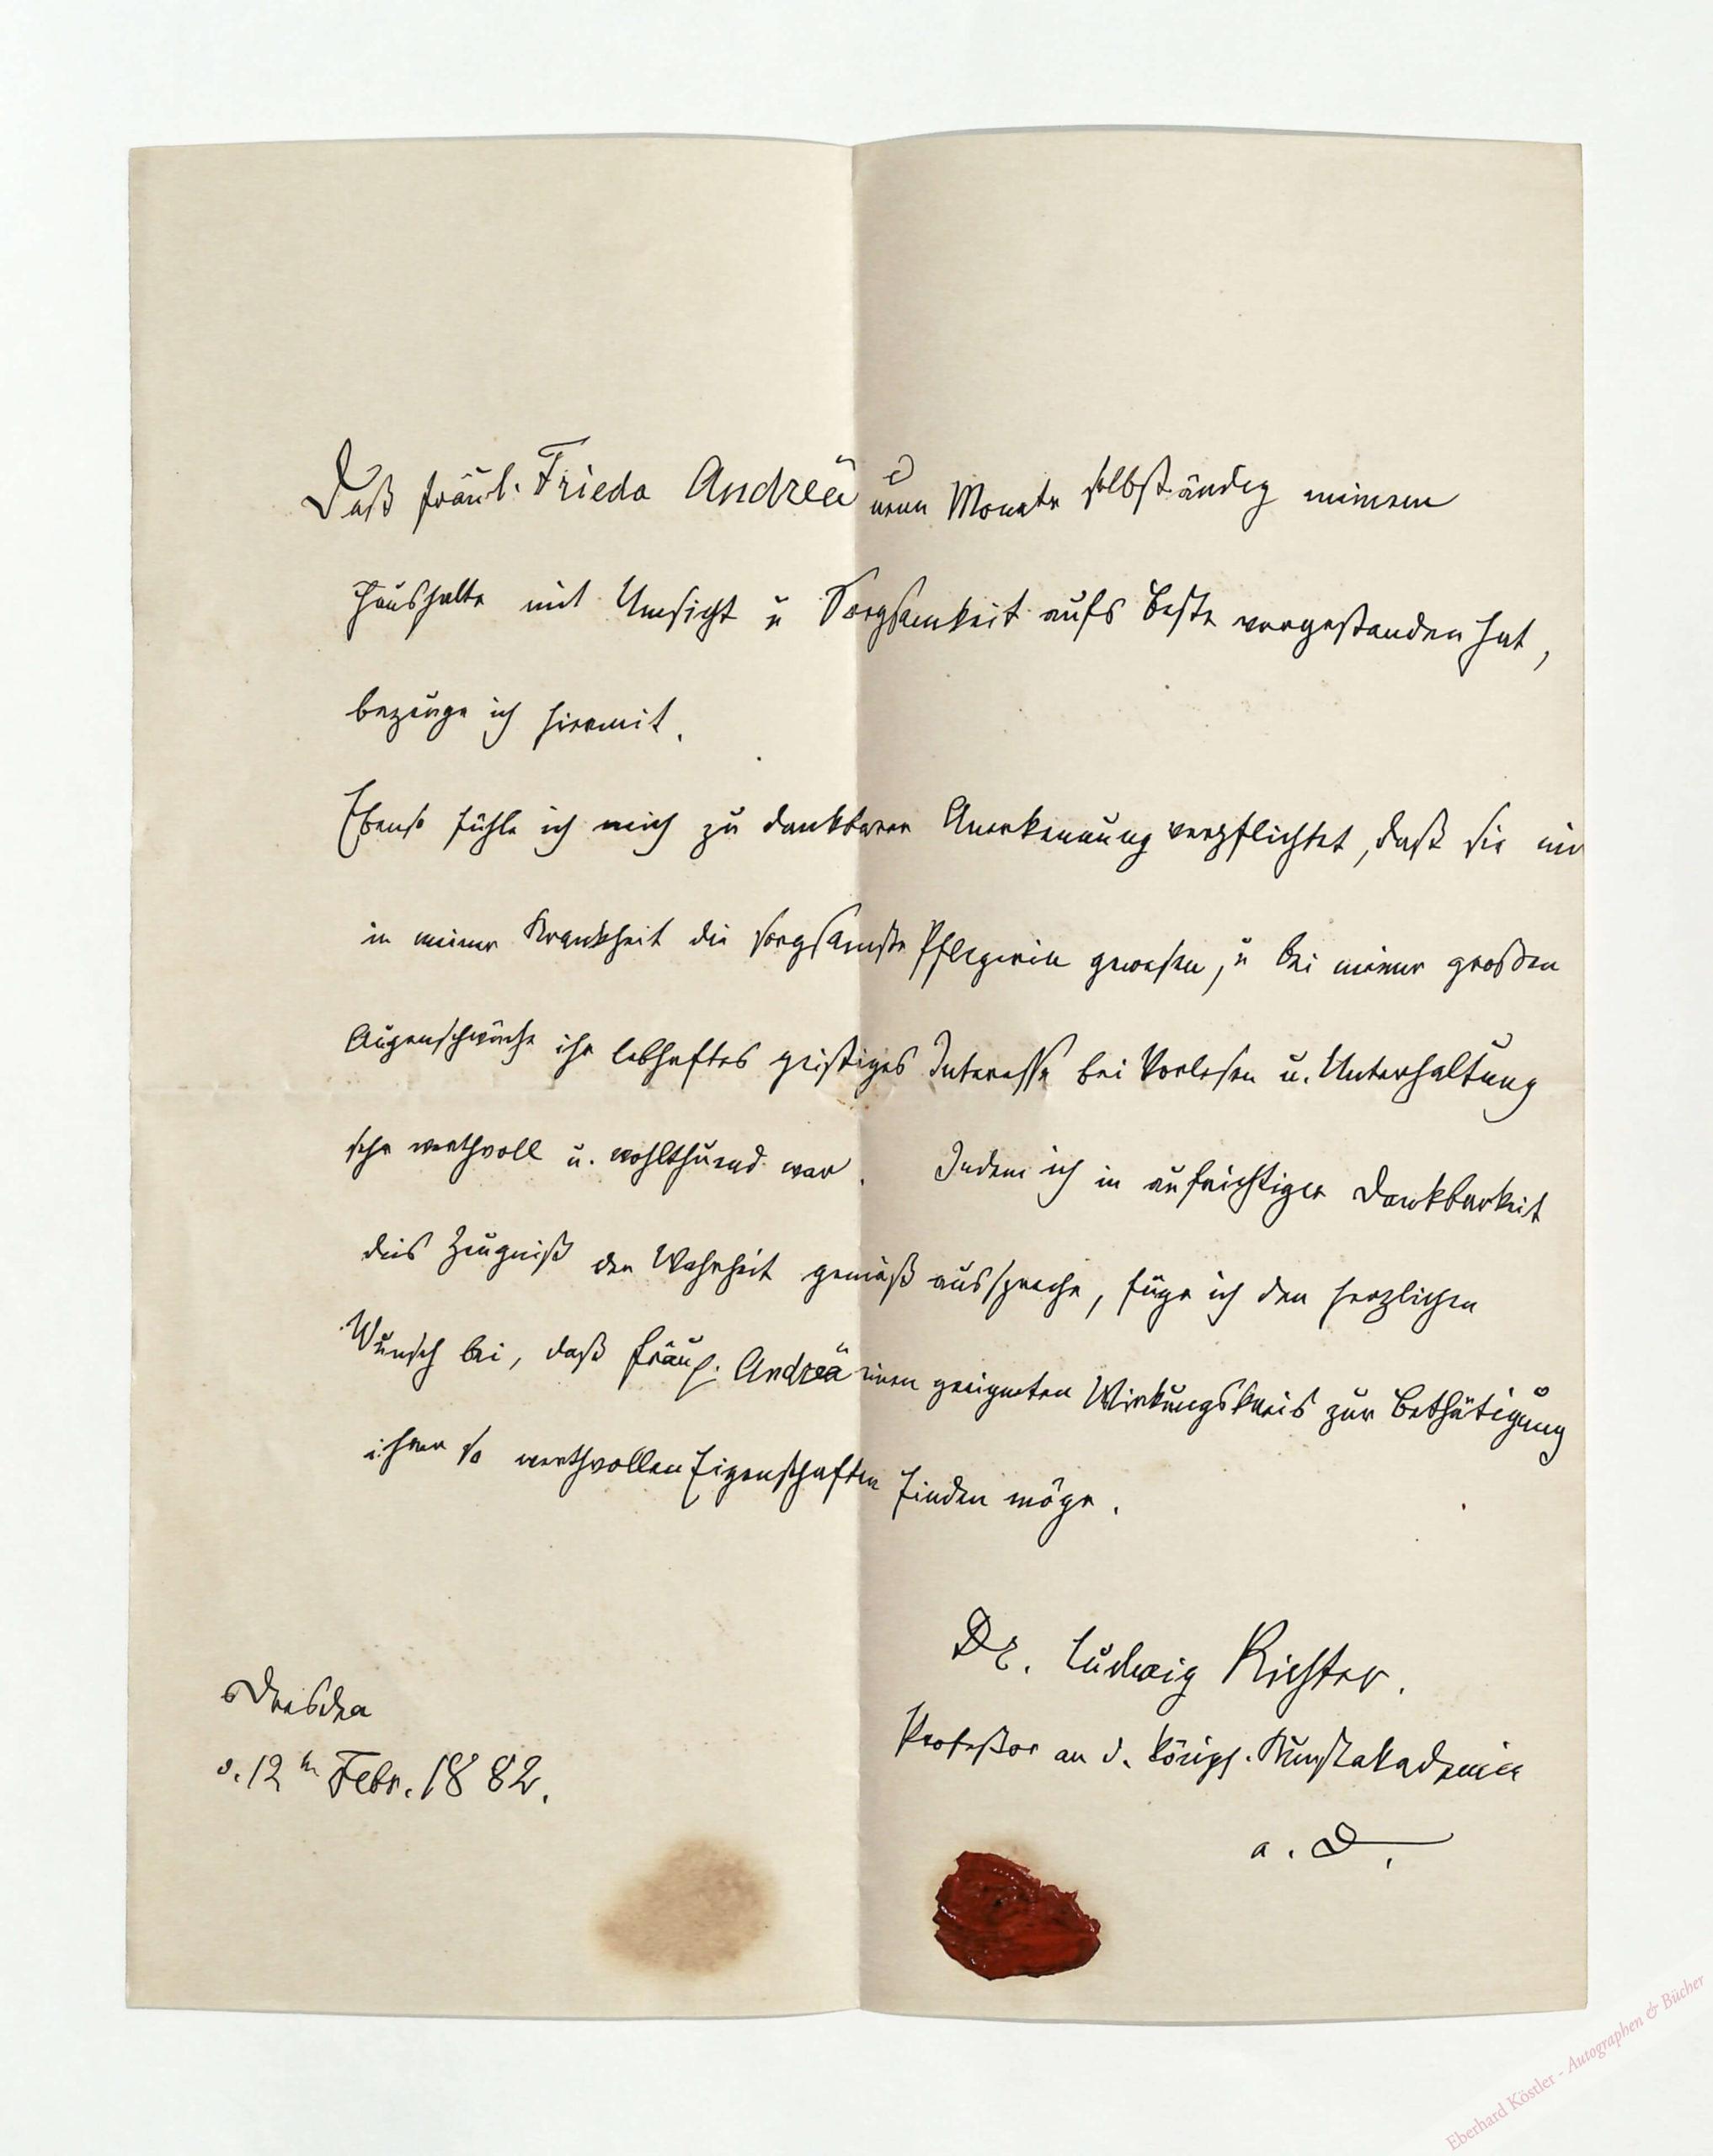 Daß Fräul. Frieda Andreä neun Monate selbständig meinem
Haushalte mit Umsicht u Sorgsamkeit aufs Beste vorgestanden hat,
bezeuge ich hiermit.
Ebenso fühle ich mich zu dankbarer Anerkennung verpflichtet, daß sie mir
in meiner Krankheit die sorgsamste Pflegerin gewesen, u bei meiner großen
Augenschwäche ihr lebhaftes geistiges Interesse bei Vorlesen u. Unterhaltung
sehr werthvoll u. wohlthuend war. Indem ich in aufrichtiger Dankbarkeit
dies Zeugniß der Wahrheit gemäß ausspreche, füge ich den herzlichen
Wunsch bei, daß Fräul. Andreä einen geeigneten Wirkungskreis zur Bethätigung
ihrer so werthvollen Eigenschaften finden möge.
Dr. Ludwig Richter.
Professor an d. königl. Kunstakademie
a. D.
Dresden
d. 12 tn Febr. 1882.
Eberhard Köstler - Autographen & Bücher